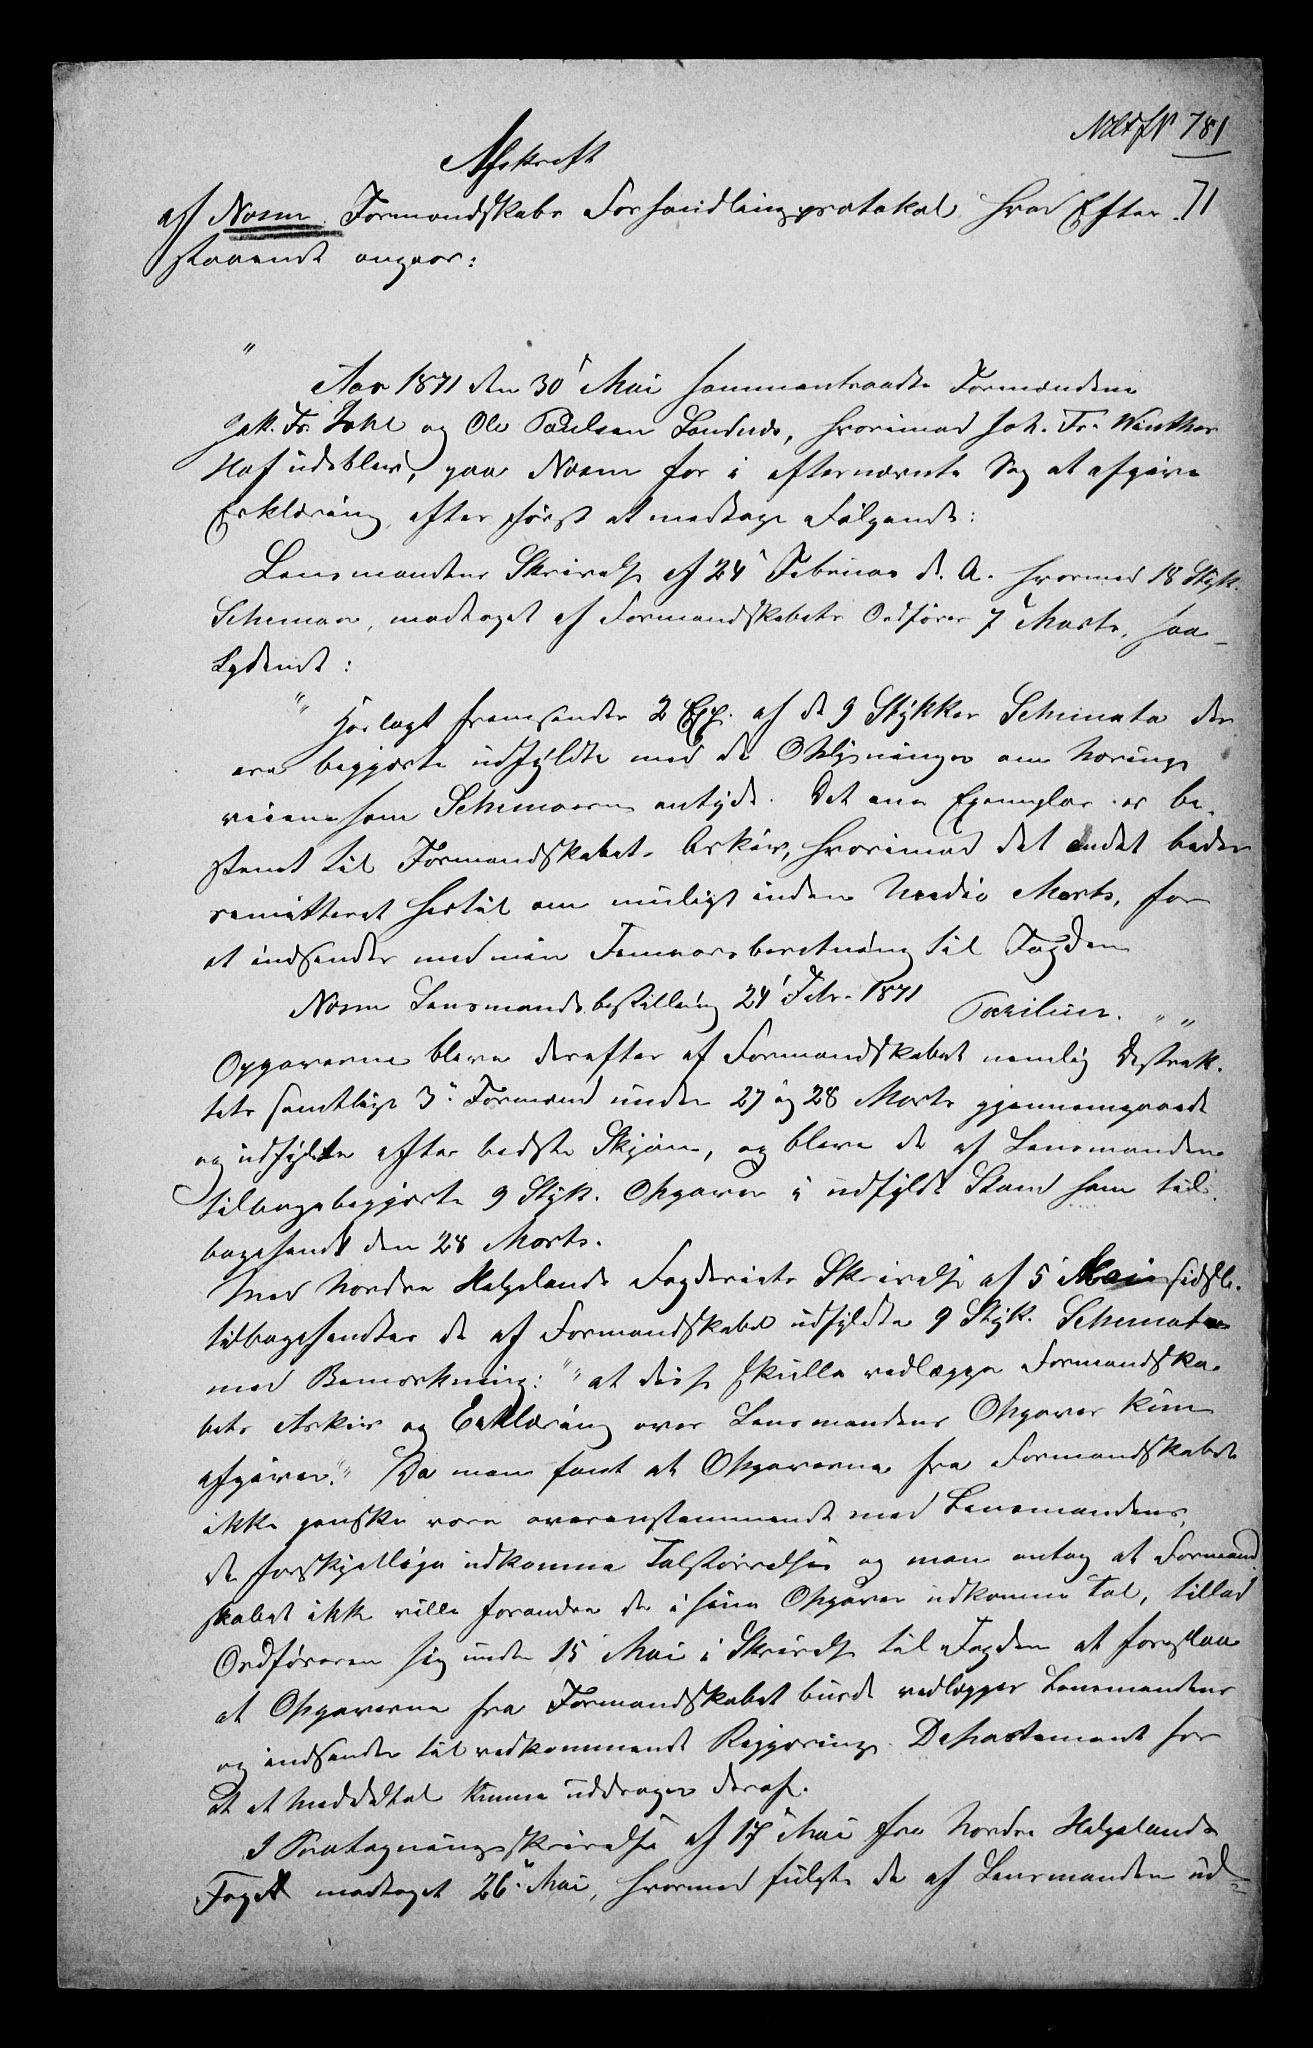 Afskrift
781
71
af Nesna Formandskabs Forhandlingsprotokol hvad Efter
staaende angaar:
" Aar 1871 den 30' Mai sammentraadte Formændene
Jak. Fr. Zahl og Ole Paulsen Sandnæs, hvorimod Joh. Fr. Winther
Hof udeblev, paa Næsna for i efternævnte Sag at afgive
Erklæring, efter først at modtage Følgende:
Lensmandens Skrivelse af 24' Februar d. A. hvormed 18 Styk.
Schemaer, modtaget af Formandskabets Ordfører 7' Marts, saa-
lydende:
" Hoslagt fremsendes 2 Exp. af de 9 Stykker Schemata der
ere begjærte udfyldte med de Oplysninger om Nærings
veiene som Schemaerne antyde. Det ene Exemplar er be-
stemt til Formandskabets Arkiv, hvorimod det andet bedes
remitteret hertil om muligt inden Medio Marts, for
at indsendes med min Femaarsberetning til Fogden
Næsna Lensmandsbestilling 24' Febr. 1871
Opgaverne bleve derefter af Formandskabet nemlig Distrik-
tets samtlige 3' Formænd under 27 og 28 Marts gjennemgaaede
og udfyldte efter bedste Skjøn, og bleve de af Lensmanden
tilbagebegjærte 9 Styk. Opgaver i udfyldt Stand ham til-
bagesendt den 28 Marts.
Med Nordre Helgelands Fogderiets Skrivelse af 5' Mai sidstl.
tilbagesendtes de af Formandskabet udfyldte 9 Styk. Schemata
med Bemærkning: "at disse skulle vedlægges Formandska-
bets Arkiv og Erklæring over Lensmandens Opgaver kun
afgives." Da man fandt at Opgaverne fra Formandskabet
ikke ganske vare overensstemmende med Lensmandens,
de forskjellige udkomne Talstørrelser og man antog at Formand
skabet ikke ville forandre de i sine Opgaver udkomne Tal, tillod
Ordføreren sig under 15' Mai i Skrivelse til Fogden at foreslaa
at Opgaverne fra Formandskabet burde vedlægges Lensmandens
og indsendes til vedkommende Regjerings Departement for
at et Middeltal kunne uddrages deraf.
I Paategningsskrivelse af 17' Mai fra Nordre Helgelands
Foged modtaget 26' Mai, hvormed fulgte de af Lensmanden ud-